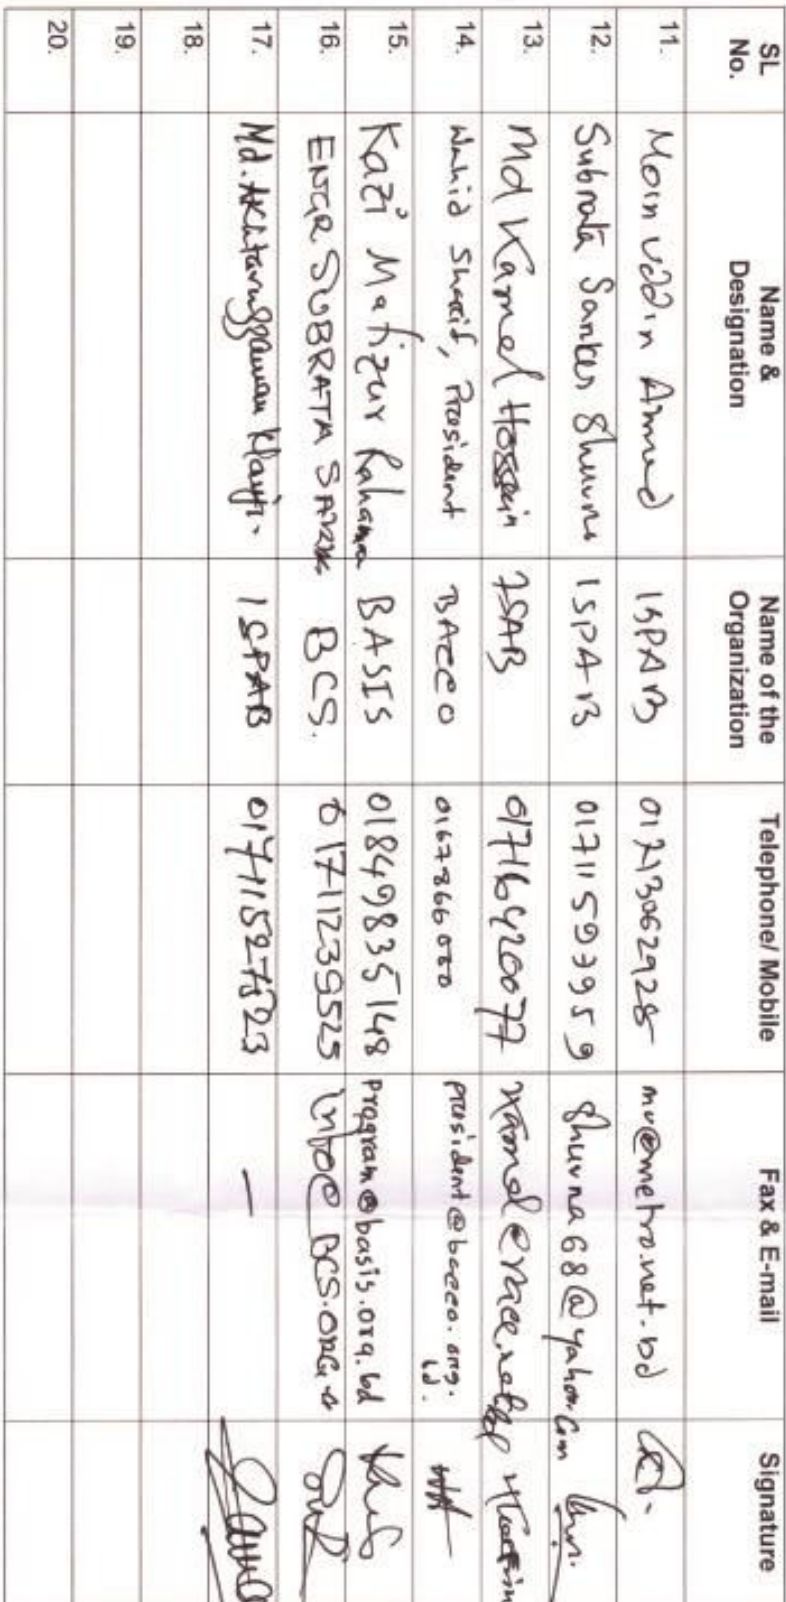 SL No. Name & Designation Name of the Organization Telephone/ Mobile Fax & E-mail Signature
11. Moin Uddin Ahmed ISPAB 01713062928 mu@metro.net.bd
12. Subrata Sarker Shuvra ISPAB 01711593959 Shuvra68@yahoo.com
13. Md Kamal Hossain ISAB 01716420077
14. Wahid Sharif, President BACCO 0167866000 president@bacco.org.bd.
15. Kazi Matizur Rahaman BASIS 01849835148 Program@basis.org.bd
16. ENGR SUBRATA SARKAR BCS. 01711239525 info@BCS.ORG.
17. Md. ISPAB 01711527523 —
18.
19.
20.